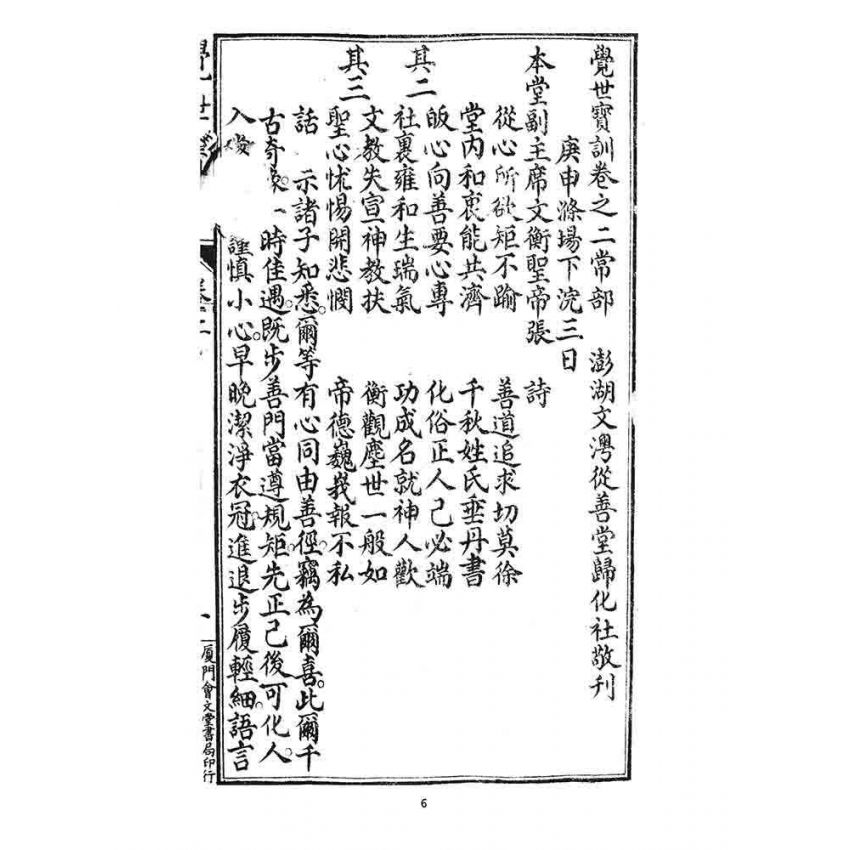 覺世寶訓卷之二常部　澎湖文灣從善堂歸化社敬刊
庚申滌場下浣三日
本堂副主席文衡聖帝張　詩
從心所欲矩不踰　善道追求切莫徐
堂內和衷能共濟　千秋姓氏垂丹書
其二
皈心向善要心專　化俗正人己必端
社裏雍和生瑞氣　功成名就神人歡
其三
文教失宣神教扶　衡觀塵世一般如
聖心怵惕開悲憫　帝德巍峩報不私
話　示諸子知悉。爾等有心同由善徑。竊為爾喜。此爾千
古奇　一時佳遇。既步善門當遵規矩。先正己後可化人。
入　謹慎小心。早晚潔淨衣冠。進退步履輕細。語言
覺世
卷二
一
廈門會文堂書局印行
6